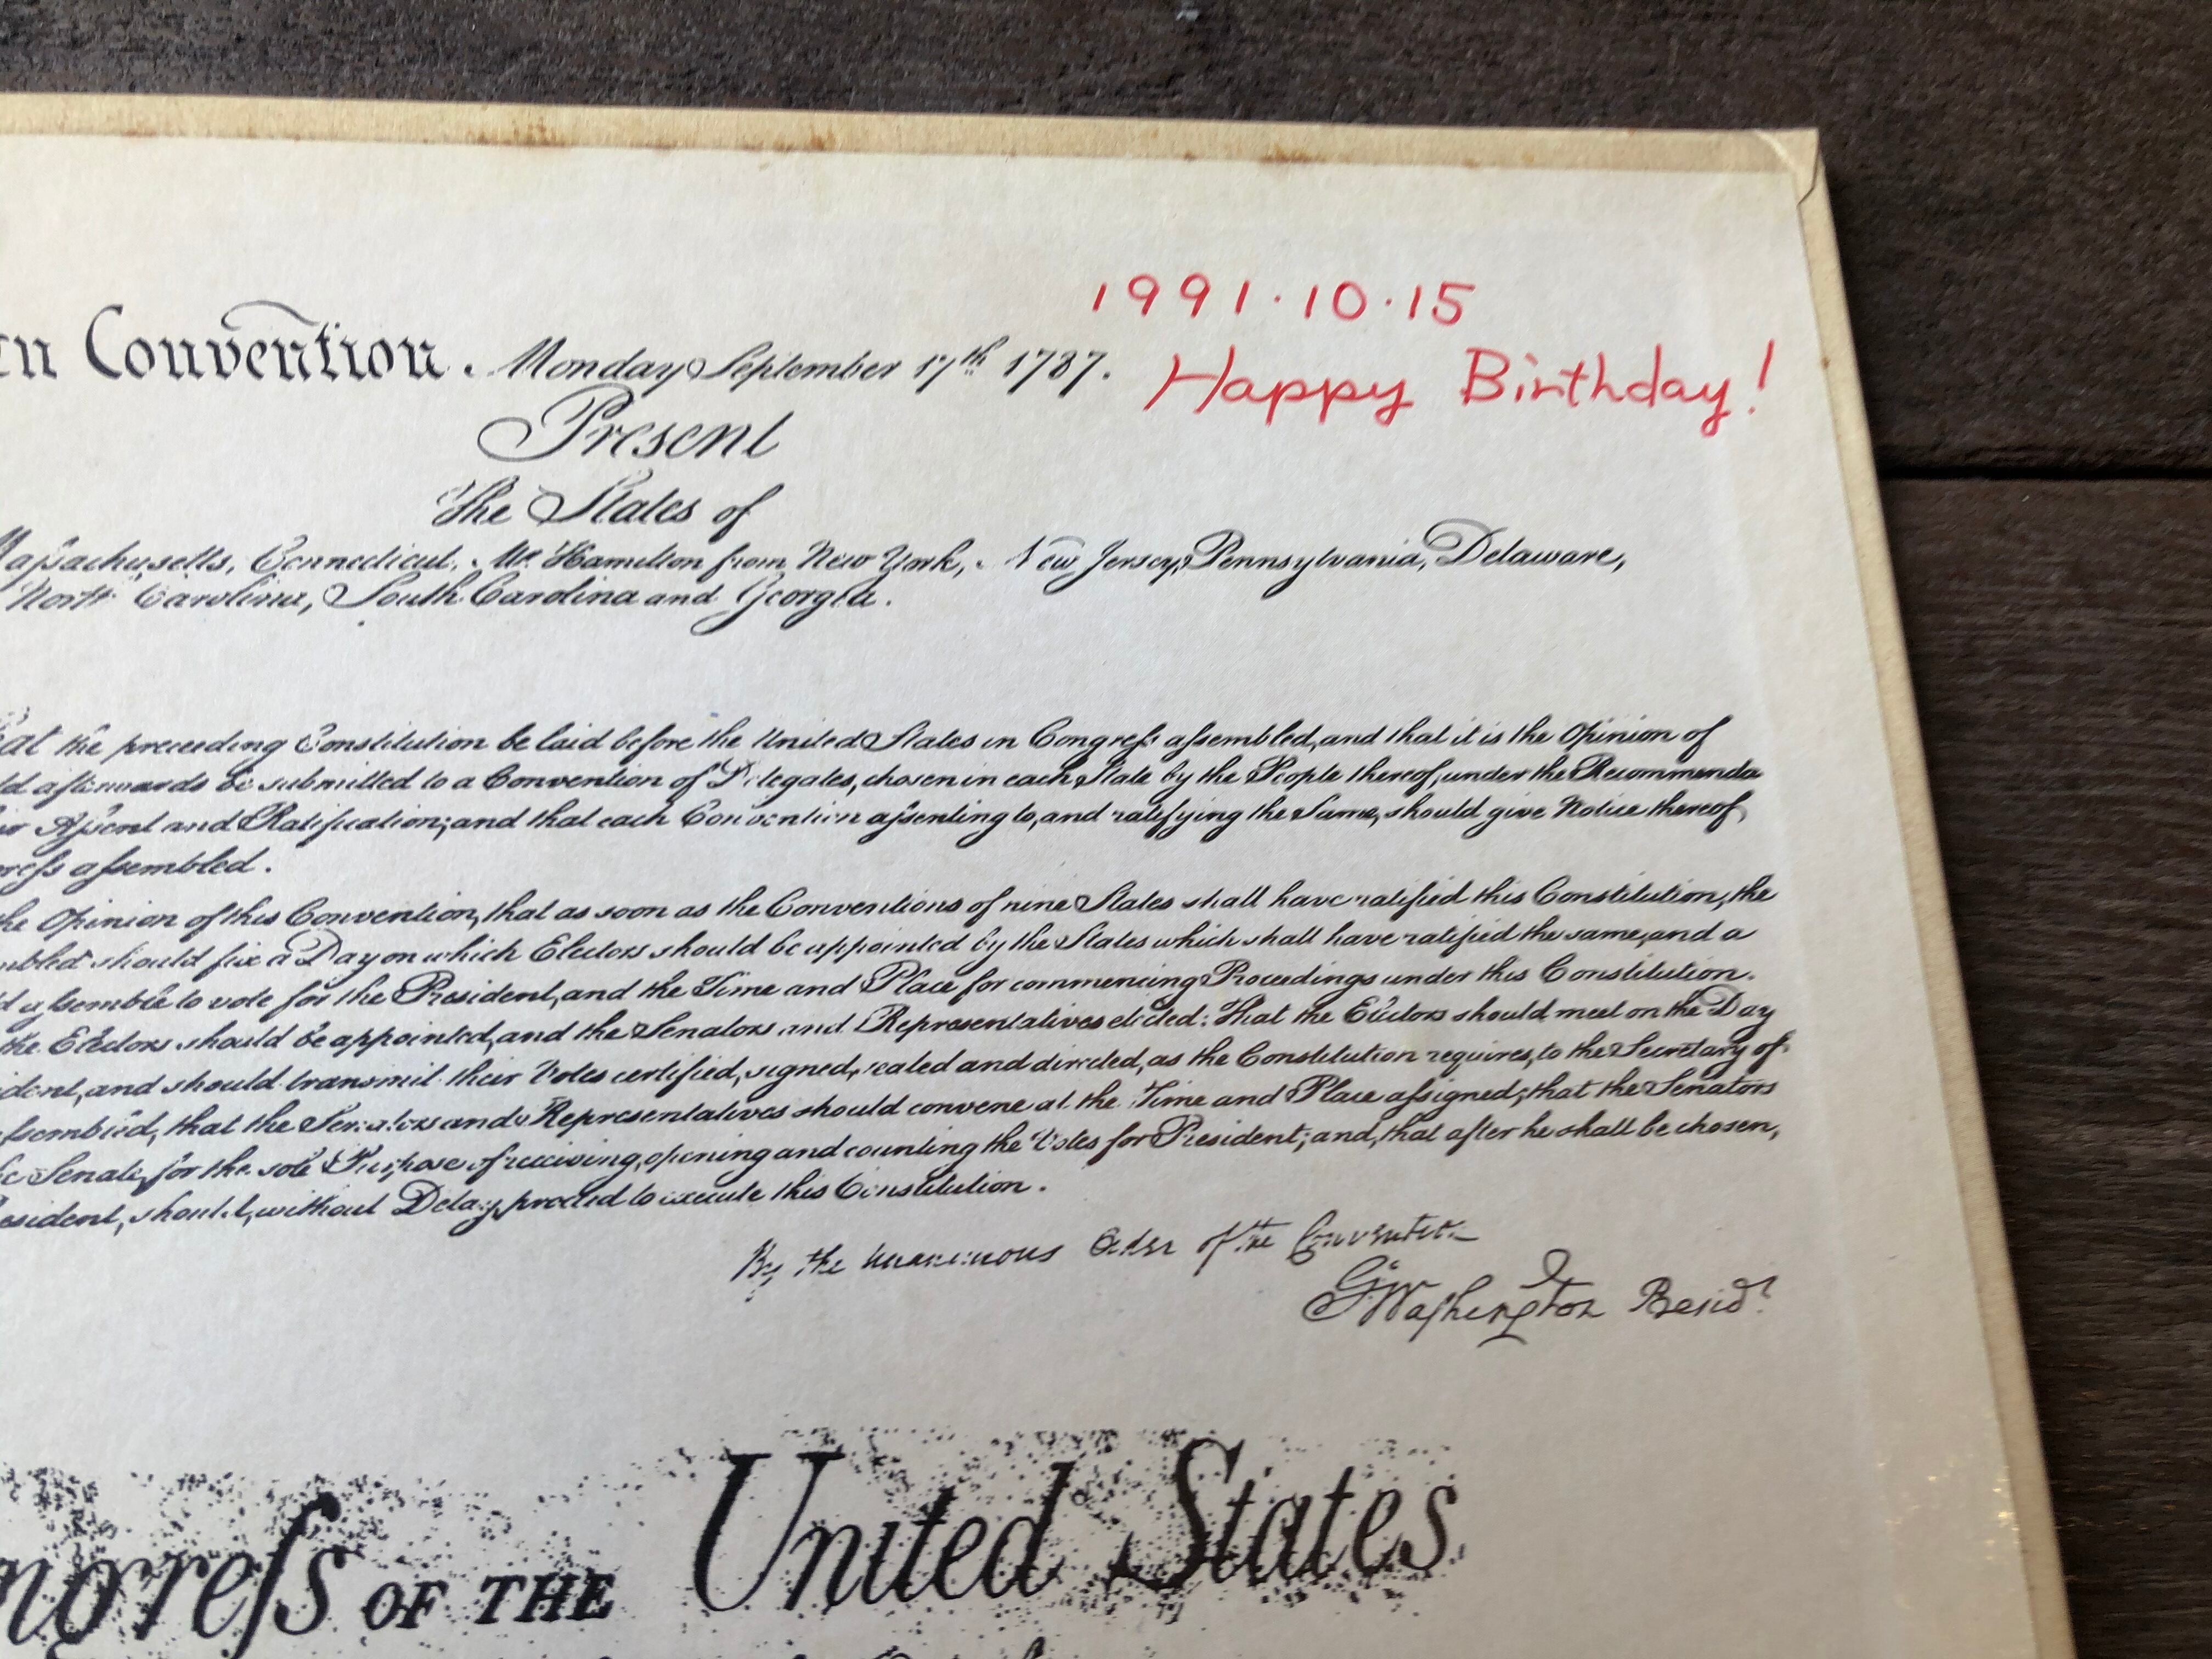 1991.10.15
Convention. Monday September 17th 1787. Happy Birthday!
Present
The States of
Massachusetts, Connecticut, Mr. Hamilton from New York, New Jersey, Pennsylvania, Delaware,
North Carolina, South Carolina and Georgia.
the preceeding Constitution be laid before the United States in Congress assembled, and that it is the Opinion of
afterwards be submitted to a Convention of Delegates, chosen in each State by the People thereof, under the Recommenda
Assent and Ratification; and that each Convention assenting to, and ratifying the Same, should give Notice thereof
assembled.
the Opinion of this Convention, that as soon as the Conventions of nine States shall have ratified this Constitution, the
should fix a Day on which Electors should be appointed by the States which shall have ratified the same, and a
assemble to vote for the President, and the Time and Place for commencing Proceedings under this Constitution.
the Electors should be appointed, and the Senators and Representatives elected: That the Electors should meet on the Day
and should transmit their Votes certified, signed, sealed and directed, as the Constitution requires, to the Secretary of
that the Senators and Representatives should convene at the Time and Place assigned; that the Senators
Senate, for the sole Purpose of receiving, opening and counting the Votes for President; and, that after he shall be chosen,
should, without Delay, proceed to execute this Constitution.
By the Unanimous Order of the Convention
Go Washington Presidt
OF THE United States